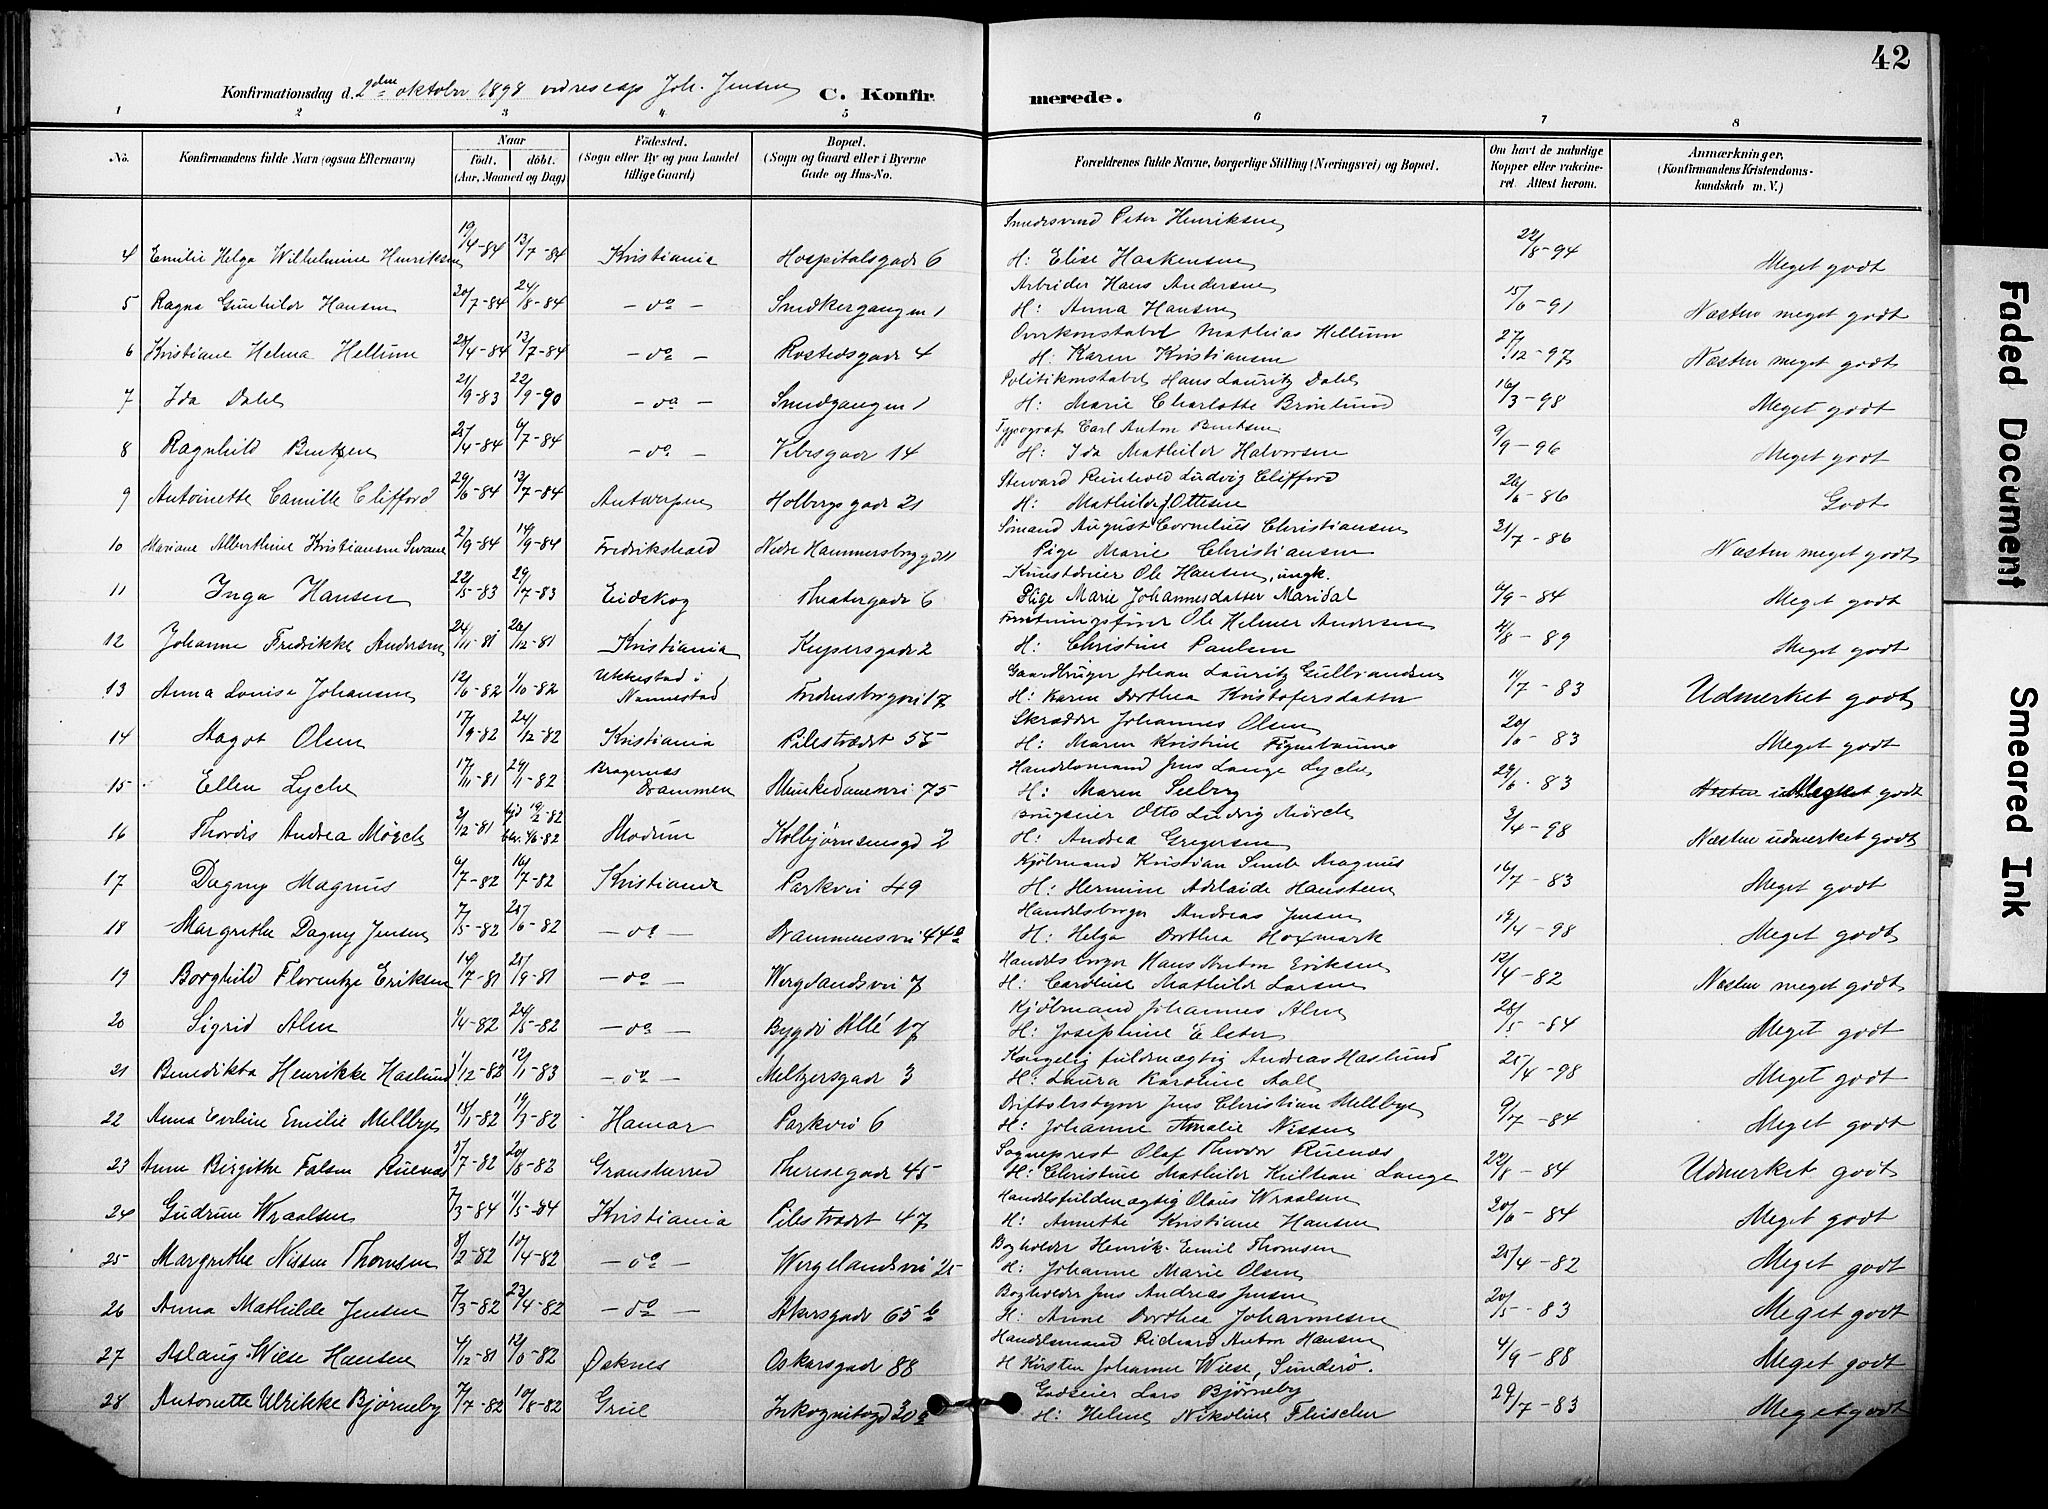 42
Konfirmationsdag d. 2den oktober 1898 Joh. Jensen C. Konfir merede.
1 2 3 4 5 6 7 8
No. Konfirmandens fulde Navn (ogsaa Efternavn) Naar født. døbt. (Aar, Maaned og Dag) Fødested. (Sogn eller By og paa Landet tillige Gaard) Bopæl. (Sogn og Gaard eller i Byerne Gade og Hus-No. Forældrenes fulde Navne, borgerlige Stilling (Næringsvei) og Bopæl. Om havt de naturlige Kopper eller vakcineret. Attest herom. Anmærkninger, (Konfirmandens Kristendomskundskab m. V.)
Smedsvend Peter Henriksen
4 Emilie Helga Wilhelmine Henriksen 19/4-84 13/7-84 Kristiania Hospitalsgade 6 H: Elise Haakensen 22/8-94 Meget godt
Arbeider Hans Andersen
5 Ragna Gunhilde Hansen 20/7-84 24/8-84 - do - Snedkergangen 1 H: Anna Hansen 15/6-91 Næsten meget godt
Overkonstabel Mathias Hellum
6 Kristiane Helma Hellum 28/4-84 13/7-84 - do - Rostedsgade 4 H: Karen Kristiansen 27/12-97 Næsten meget godt
Politikonstabel Hans Lauritz Dahl
7 Ida Dahl 21/9-83 22/9-90 - do - Smedgangen 1 H: Marie Charlotte Brönlund 16/3-98 Meget godt
Typograf Carl Anton Bentsen
8 Ragnhild Bentzen 25/4-84 6/7-84 - do - Vibesgade 14 H: Ida Mathilde Halvorsen 9/9-96 Meget godt
Steward Reinhold Ludvig Clifford
9 Antoinette Camilla Clifford 29/6-84 13/7-84 Antwerpen Holbergsgade 21 H: Mathilde Ottesen 26/6-86 Godt
Sömand August Cornelius Christiansen
10 Mariane Alberthine Kristiansen Svane 27/9-84 14/9-84 Fredrikshald Nedre Hammersborggd 1 Pige Marie Christiansen 21/7-86 Næsten meget godt
Ole Hansen, ungk.
11 Inga Hansen 22/5-83 29/7-83 Eidskog Theatergade 6 Pige Marie Johannesdatter Maridal 6/9-84 Meget godt
Ole Helmer Andersen
12 Johanne Fredrikke Andersen 24/11-81 26/12-81 Kristiania Keysersgade 2 H: Christine Paulsen 4/8-89 Meget godt
Gaardbruger Johan Lauritz Gulbrandsen
13 Anna Louise Johansen 12/6-82 1/10-82 Ukkestad i Nannestad Fredensborgvei 17 H: Karen Dorthea Kristofersdatter 11/7-83 Udmerket godt
Skrædder Johannes Olsen
14 Hagot Olsen 17/9-82 24/12-82 Kristiania Pilestrædet 55 H: Maren Kristine 20/6-83 Meget godt
Handelsmand Jens Lange Lyche
15 Ellen Lyche 17/11-81 29/1-82 Bragernæs Drammen Munkedamsvei 75 H: Maren Seeberg 29/6-83 Meget godt
Brugseier Otto Ludvig Mörch
16 Thordis Andrea Mörch 2/12-81 hjd 19/2-82 bkr. 4/6-82 Modum Kolbjørnsensgd 2 H: Andrea Gregersen 3/4-98 Næsten udmerket godt
Kjöbmand Kristian Semb Magnus
17 Dagny Magnus 6/7-82 16/7-82 Kristiania Parkvei 49 H: Hermine Adelaide Hansteen 16/7-83 Meget godt
Handelsborger Andreas Jensen
18 Margrethe Dagny Jensen 7/5-82 25/6-82 - do - Drammensvei 44a H: Helga Dorthea Hoxmark 19/4-98 Meget godt
Handelsborger Hans Anton Eriksen
19 Borghild Florentze Eriksen 14/7-81 25/9-81 - do - Wergelandsvei 7 H: Caroline Mathilde Larsen 12/4-82 Næsten meget godt
Kjöbmand Johannes Alm
20 Sigrid Alm 1/4-82 24/5-82 - do - Bygdö Allé 17 H: Josephine Elster 28/5-84 Meget godt
Kongelig fuldmægtig Andreas Haslund
21 Benedikta Henrikke Haslund 1/12-82 12/1-83 - do - Meltzersgade 3 H: Laura Karoline Aall 25/4-98 Meget godt
Driftsbestyrer Jens Christian Mellbye
22 Anna Eveline Emilie Mellbye 15/1-82 19/3-82 Hamar Parkvei 6 H: Johanne Amalie Nissen 9/7-84 Meget godt
Sogneprest Olaf Theodor Ruenæs
23 Anne Birgithe Falsen Ruenæs 5/7-82 20/8-82 Gransherred Theresegade 45 H: Christine Mathilde Kielman Lange 22/8-84 Udmerket godt
Handelsfuldmægtig Olaus Wraalsen
24 Gudrun Wraalsen 7/3-84 11/5-84 Kristiania Pilestrædet 47 H: Annette Kristiane Hansen 20/6-84 Meget godt
Bogholder Henrik Emil Thomsen
25 Margrethe Nissen Thomsen 8/2-82 10/4-82 - do - Wergelandsvei 25 H: Johanne Marie Olsen 25/4-82 Meget godt
Bogholder Jens Andreas Jensen
26 Anna Mathilde Jensen 7/3-82 23/4-82 - do - Akersgade 65 b H: Anne Dorthea Johannesen 20/5-83 Meget godt
Handelsmand Richard Anton Hansen
27 Aslaug Wiese Hansen 4/12-81 12/6-82 Øsknes Oskarsgade 88 H Kirsten Johanne Wiese, Sunderö. 4/9-88 Meget godt
Godseier Lars Bjørneby
28 Antonette Ulrikke Bjørneby 7/7-82 10/8-82 Grue Inkognitogd 30 a H: Helene Nikoline Fleischer 29/7-83 Meget godt
Faded Document
Smeared Ink